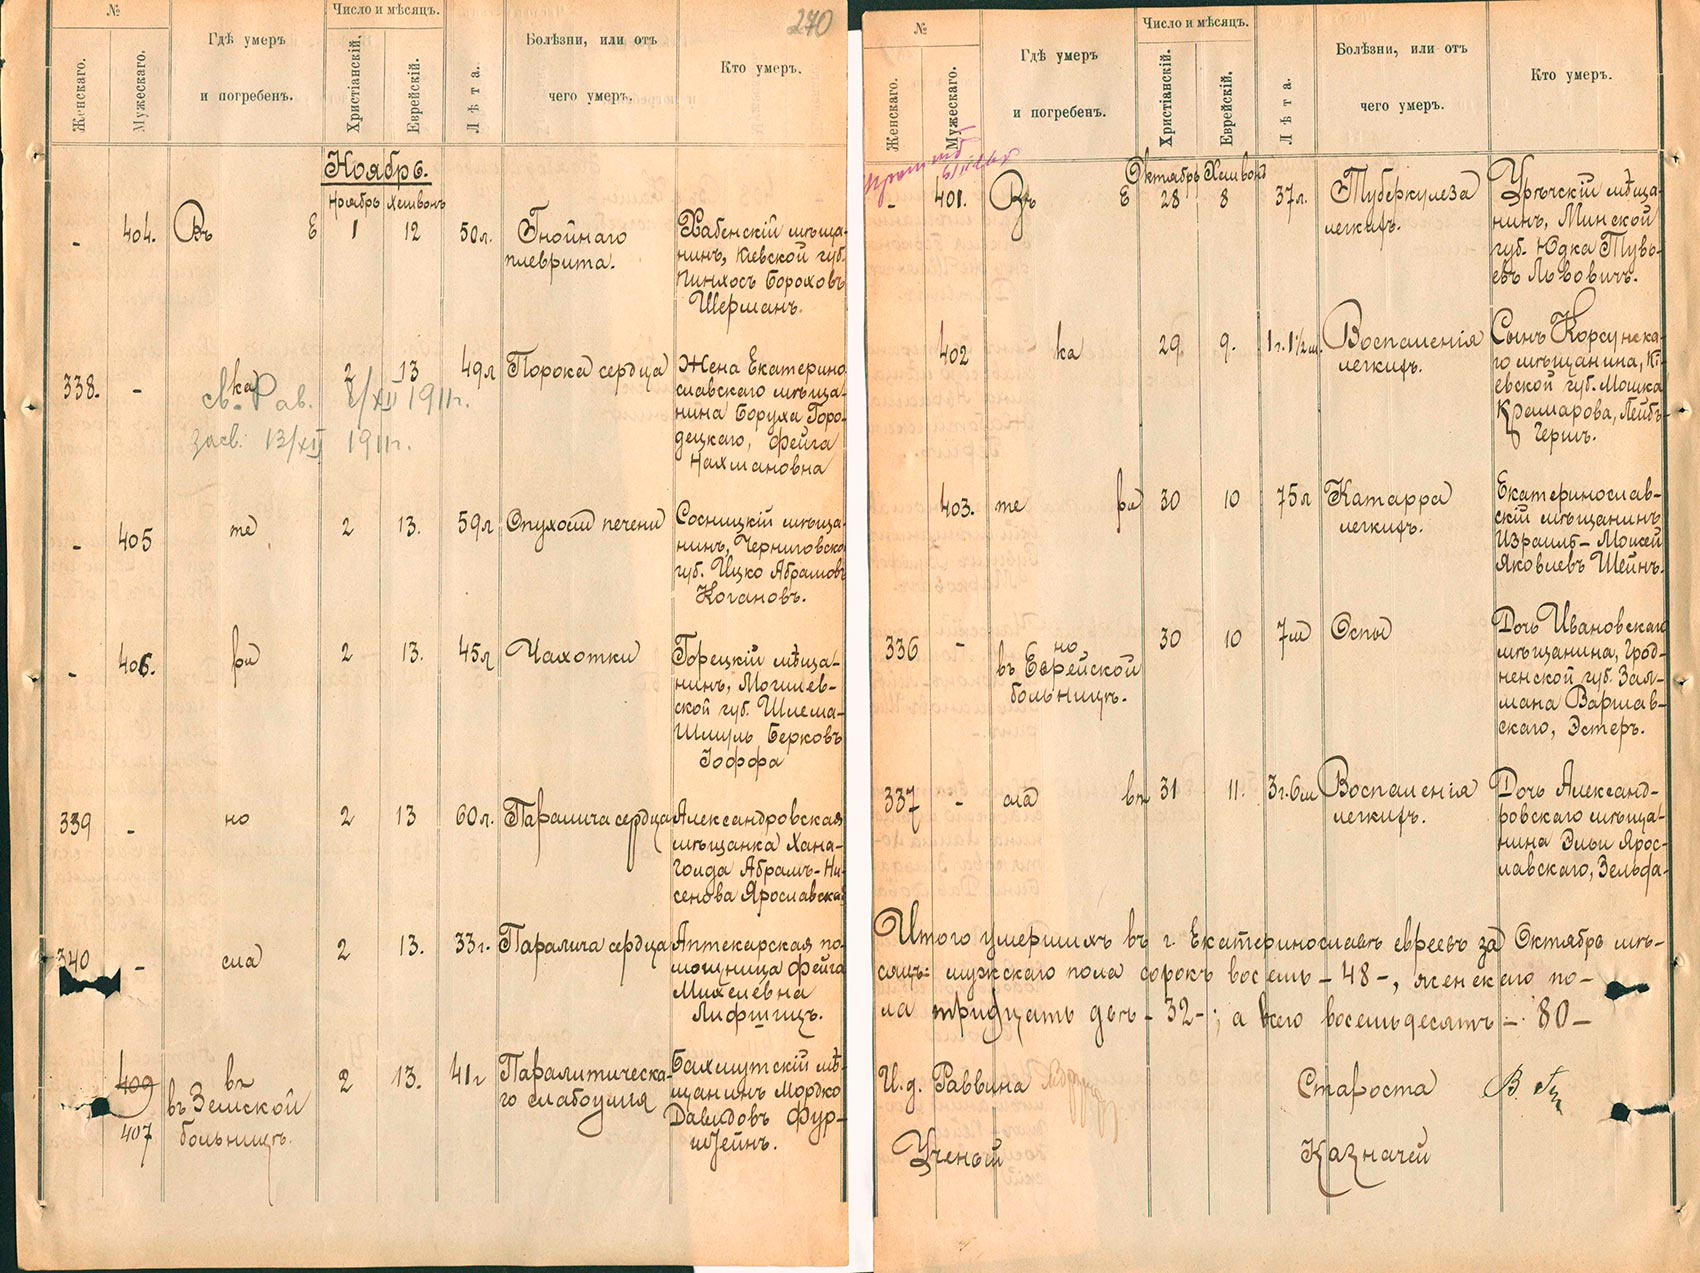 270
№
Женскаго.
Мужескаго.
Гдѣ умеръ
и погребенъ.
Число и мѣсяцъ.
Христіанскій.
Еврейскій.
Лѣта.
Болѣзни, или отъ
чего умеръ.
Кто умеръ.
Ноябрь.
Ноябрь Хешвонъ
- 404. Въ Е 1 12 50л. Гнойнаго
плеврита.
Хабенскій мѣща-
нинъ, Кіевской губ.
Пинхосъ Бороховъ
Шерманъ.
338. - ка 2 13 49л Порока сердца
Жена Екатерино
славскаго мѣща-
нина Боруха Горо-
децкаго, Фейга
Нахмановна
св. Рав. 8/XII 1911г.
засв. 13/XII 1911г.
- 405 те 2 13. 59л Опухоли печени
Сосницкій мѣща-
нинъ, Черниговской
губ. Ицко Абрамовъ
Когановъ.
- 406. ри 2 13. 45л Чахотки
Горецкій мѣща-
нинъ, Могилев-
ской губ. Шлема-
Шмуль Берковъ
Іоффа
339 - но 2 13 60л. Паралича сердца
Александровская
мѣщанка Хана-
Голда Абрамъ-Ни-
сенова Ярославская
340 - сла 2 13. 33г. Паралича сердца
Аптекарская по-
мощница Фейга
Михелевна
Лифшицъ.
409
407
въ
въ Земской
больницѣ.
2 13. 41г Паралитическа-
го слабоумія
Бахмутскій мѣ-
щанинъ Мордко
Давидовъ Фур-
штейнъ.
№
Женскаго.
Мужескаго.
Гдѣ умеръ
и погребенъ.
Число и мѣсяцъ.
Христіанскій.
Еврейскій.
Лѣта.
Болѣзни, или отъ
чего умеръ.
Кто умеръ.
Октябрь Хешвонъ
- 401. Въ Е 28 8 37л. Туберкулеза
легкихъ.
Урѣчскій мѣща-
нинъ, Минской
губ. Юдка Туво-
евъ Львовичъ.
402 ка 29. 9. 1г.1½м. Воспаленія
легкихъ.
Сынъ Корсунска-
го мѣщанина, Кі-
евской губ. Мошка
Крамарова, Лейбъ-
Герцъ.
403. те ри 30 10 75л Катарра
легкихъ.
Екатеринослав-
скій мѣщанинъ
Израиль-Мойсей
Яковлевъ Шейнъ.
336 - но
въ Еврейской
больницѣ.
30 10 7м Оспы
Дочь Ивановскаго
мѣщанина, Грод-
ненской губ. Зал-
мана Варшав-
скаго, Эстеръ.
337 - сла въ 31 11. 3г.6м Воспаленія
легкихъ.
Дочь Александ-
ровскаго мѣща-
нина Эльи Ярос-
лавскаго, Зельфа-
Итого умершихъ въ г. Екатеринославѣ евреевъ за Октябрь мѣ-
сяцъ: мужскаго пола сорокъ восемь - 48 -, женскаго по-
ла тридцать двѣ - 32 -; а всего восемьдесятъ - 80 -
И.д. Раввина Староста
Ученый Казначей